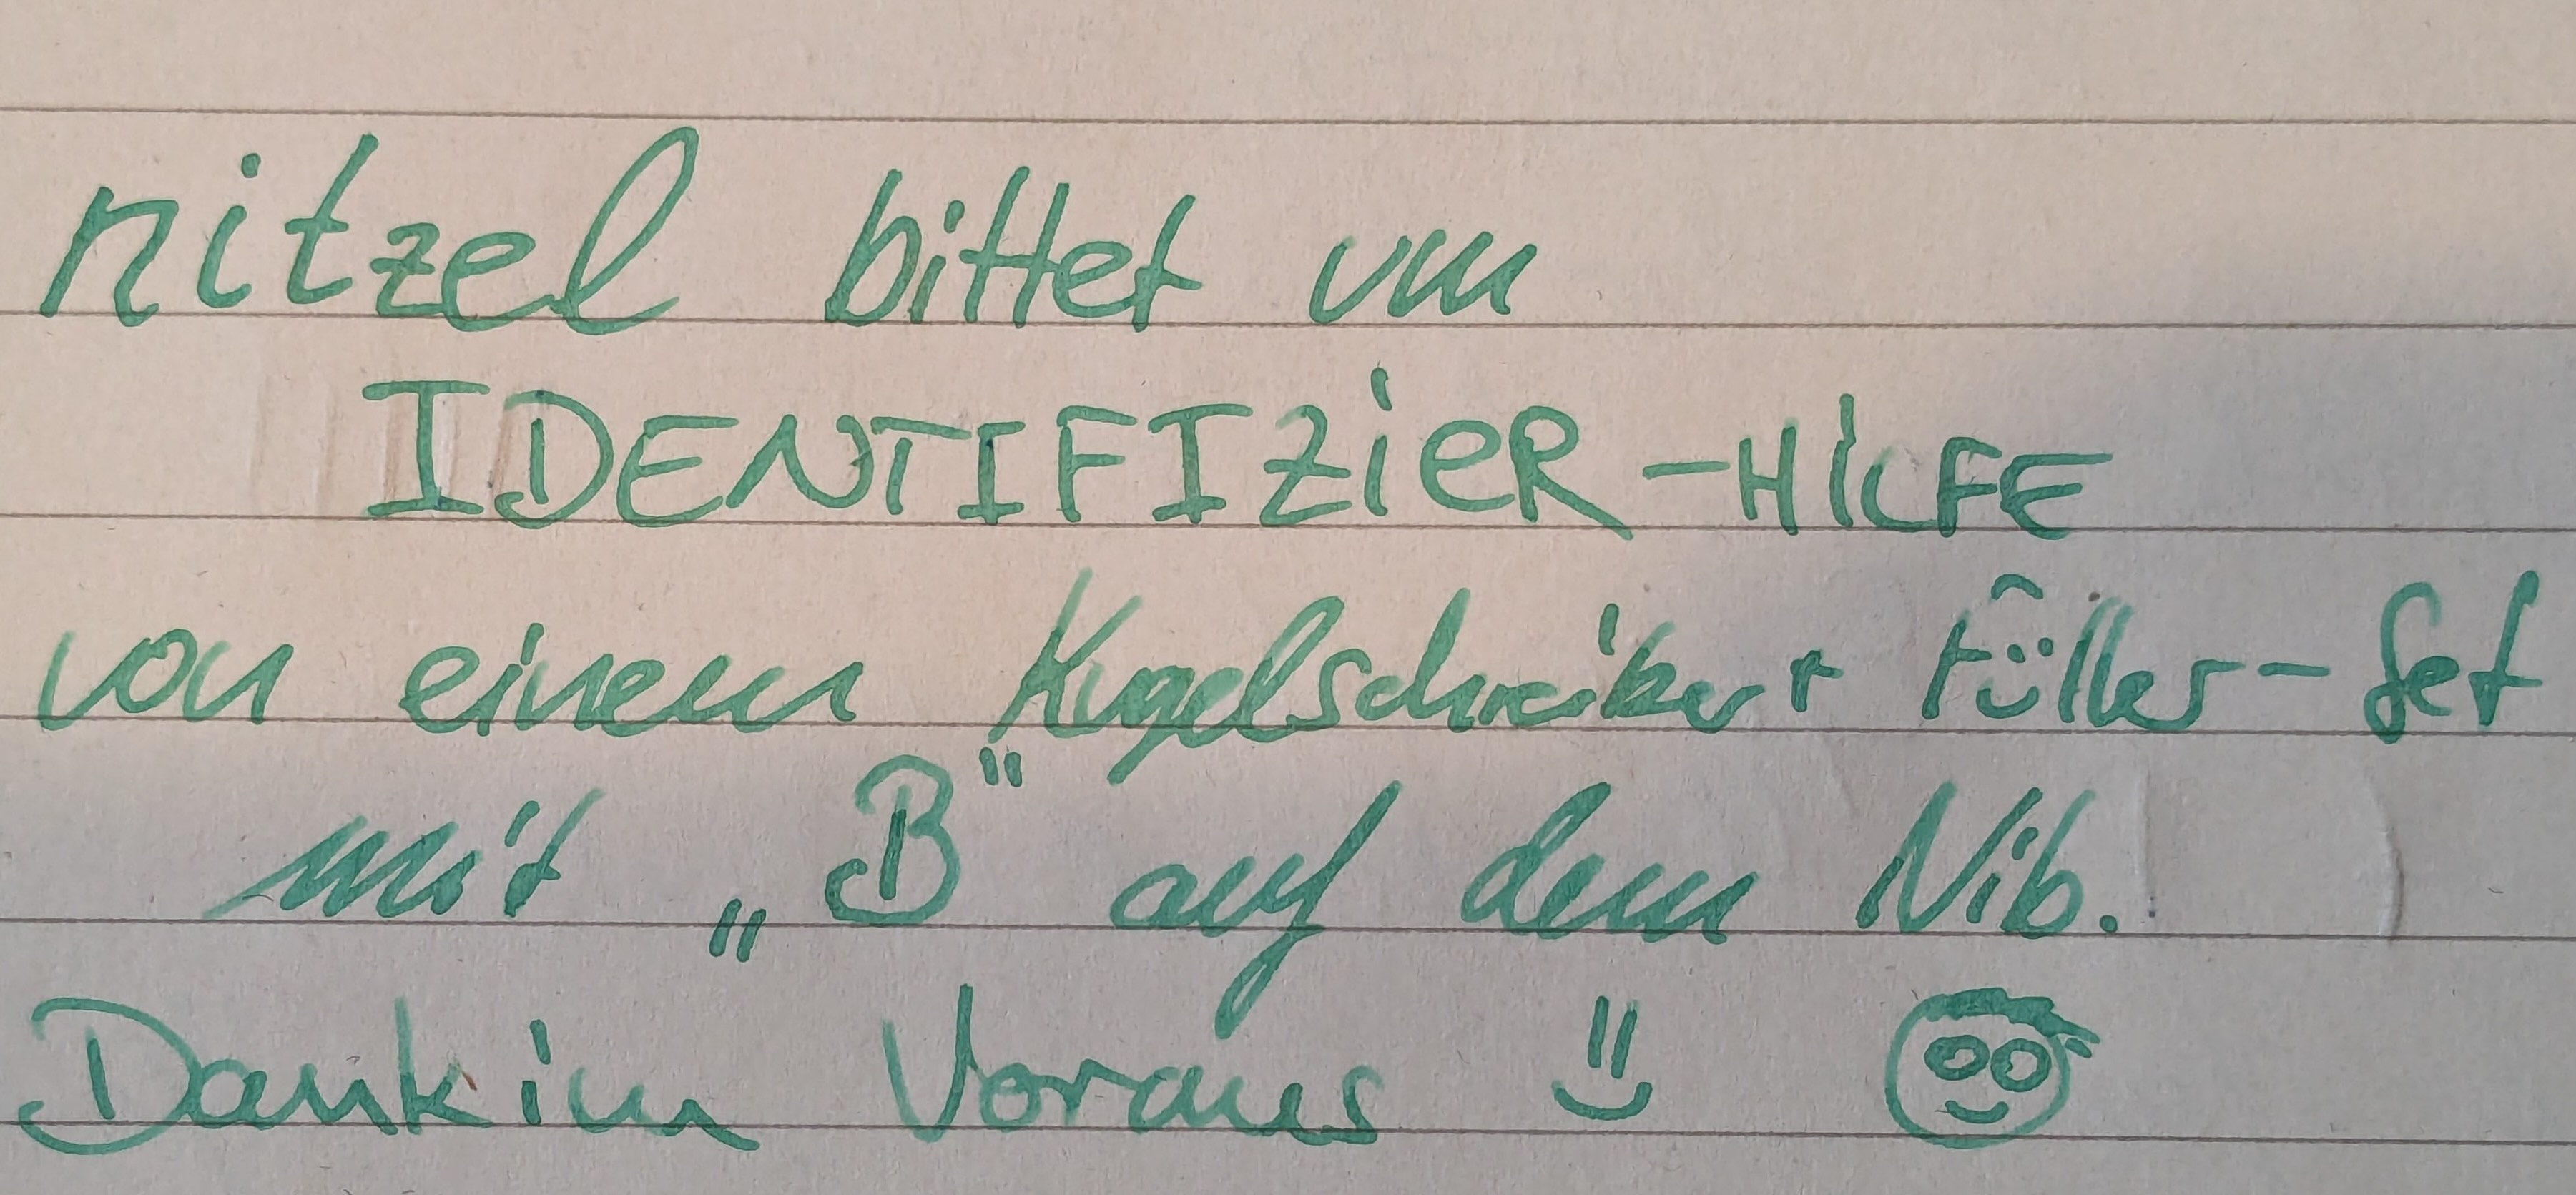 nitzel bittet um
IDENTIFIZieR-HiLFE
von einem Kugelschreiber + Füller-Set
mit „B" auf dem Nib.
Dank im Voraus